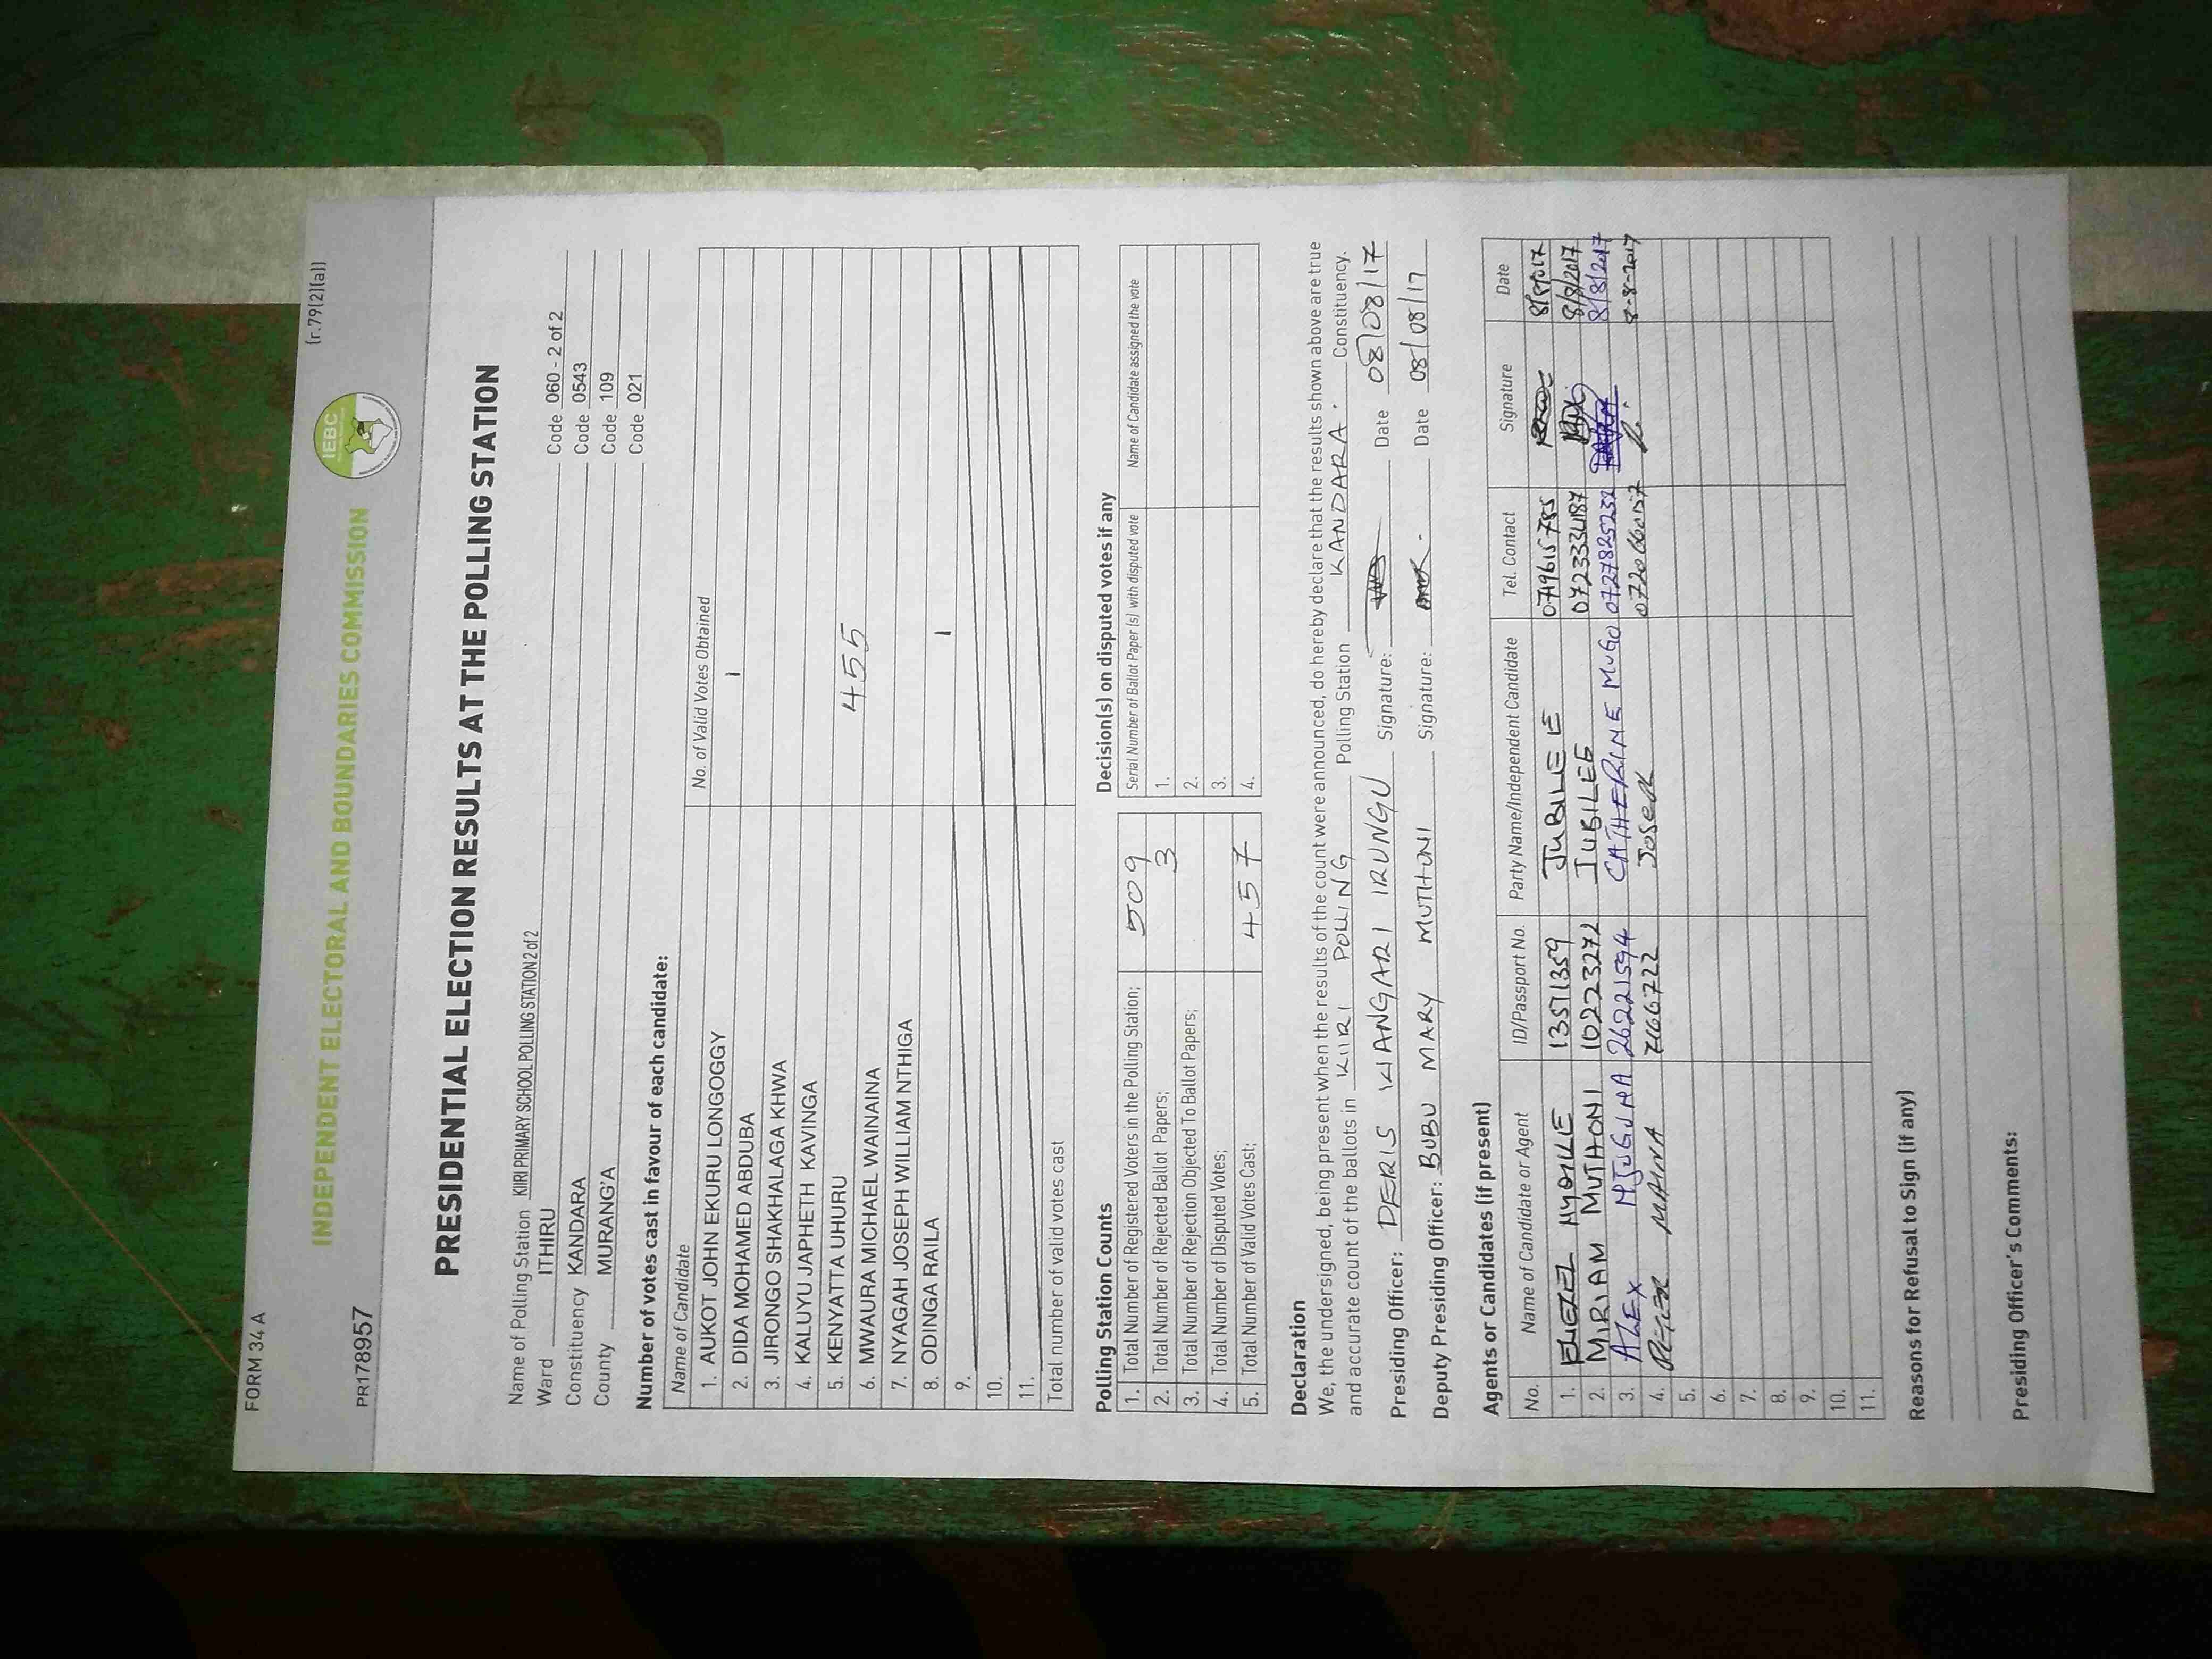 FORM 34 A
(r.79(2)(a))
IEBC
INDEPENDENT ELECTORAL AND BOUNDARIES COMMISSION
PR178957
PRESIDENTIAL ELECTION RESULTS AT THE POLLING STATION
Name of Polling Station KIIRI PRIMARY SCHOOL POLLING STATION 2 of 2 Code 060 - 2 of 2
Ward ITHIRU Code 0543
Constituency KANDARA Code 109
County MURANG'A Code 021
Number of votes cast in favour of each candidate:
Name of Candidate No. of Valid Votes Obtained
1. AUKOT JOHN EKURU LONGOGGY 1
2. DIDA MOHAMED ABDUBA
3. JIRONGO SHAKHALAGA KHWA
4. KALUYU JAPHETH KAVINGA
5. KENYATTA UHURU 455
6. MWAURA MICHAEL WAINAINA
7. NYAGAH JOSEPH WILLIAM NTHIGA
8. ODINGA RAILA 1
9.
10.
11.
Total number of valid votes cast
Polling Station Counts
1. Total Number of Registered Voters in the Polling Station; 509
2. Total Number of Rejected Ballot Papers; 3
3. Total Number of Rejection Objected To Ballot Papers;
4. Total Number of Disputed Votes;
5. Total Number of Valid Votes Cast; 457
Decision(s) on disputed votes if any
Serial Number of Ballot Paper (s) with disputed vote Name of Candidate assigned the vote
1.
2.
3.
4.
Declaration
We, the undersigned, being present when the results of the count were announced, do hereby declare that the results shown above are true
and accurate count of the ballots in KIIRI POLLING Polling Station KANDARA. Constituency.
Presiding Officer: DERIS KIANGARI IRUNGU Signature: Date 08/08/17
Deputy Presiding Officer: BUBU MARY MUTHONI Signature: Date 08/08/17
Agents or Candidates (if present)
No. Name of Candidate or Agent ID/Passport No. Party Name/Independent Candidate Tel. Contact Signature Date
1. 13571359 JUBILEE 0719615785 8/8/2017
2. MIRIAM MUTHONI 10223272 JUBILEE 0723334187 8/8/2017
3. ALEX NJUGUNA 26221594 CATHERINE MUGO 0727825232 8/8/2017
4. PETER MAINA 7466722 JOSEPH 0720660157 8-8-2017
5.
6.
7.
8.
9.
10.
11.
Reasons for Refusal to Sign (if any)
Presiding Officer's Comments: